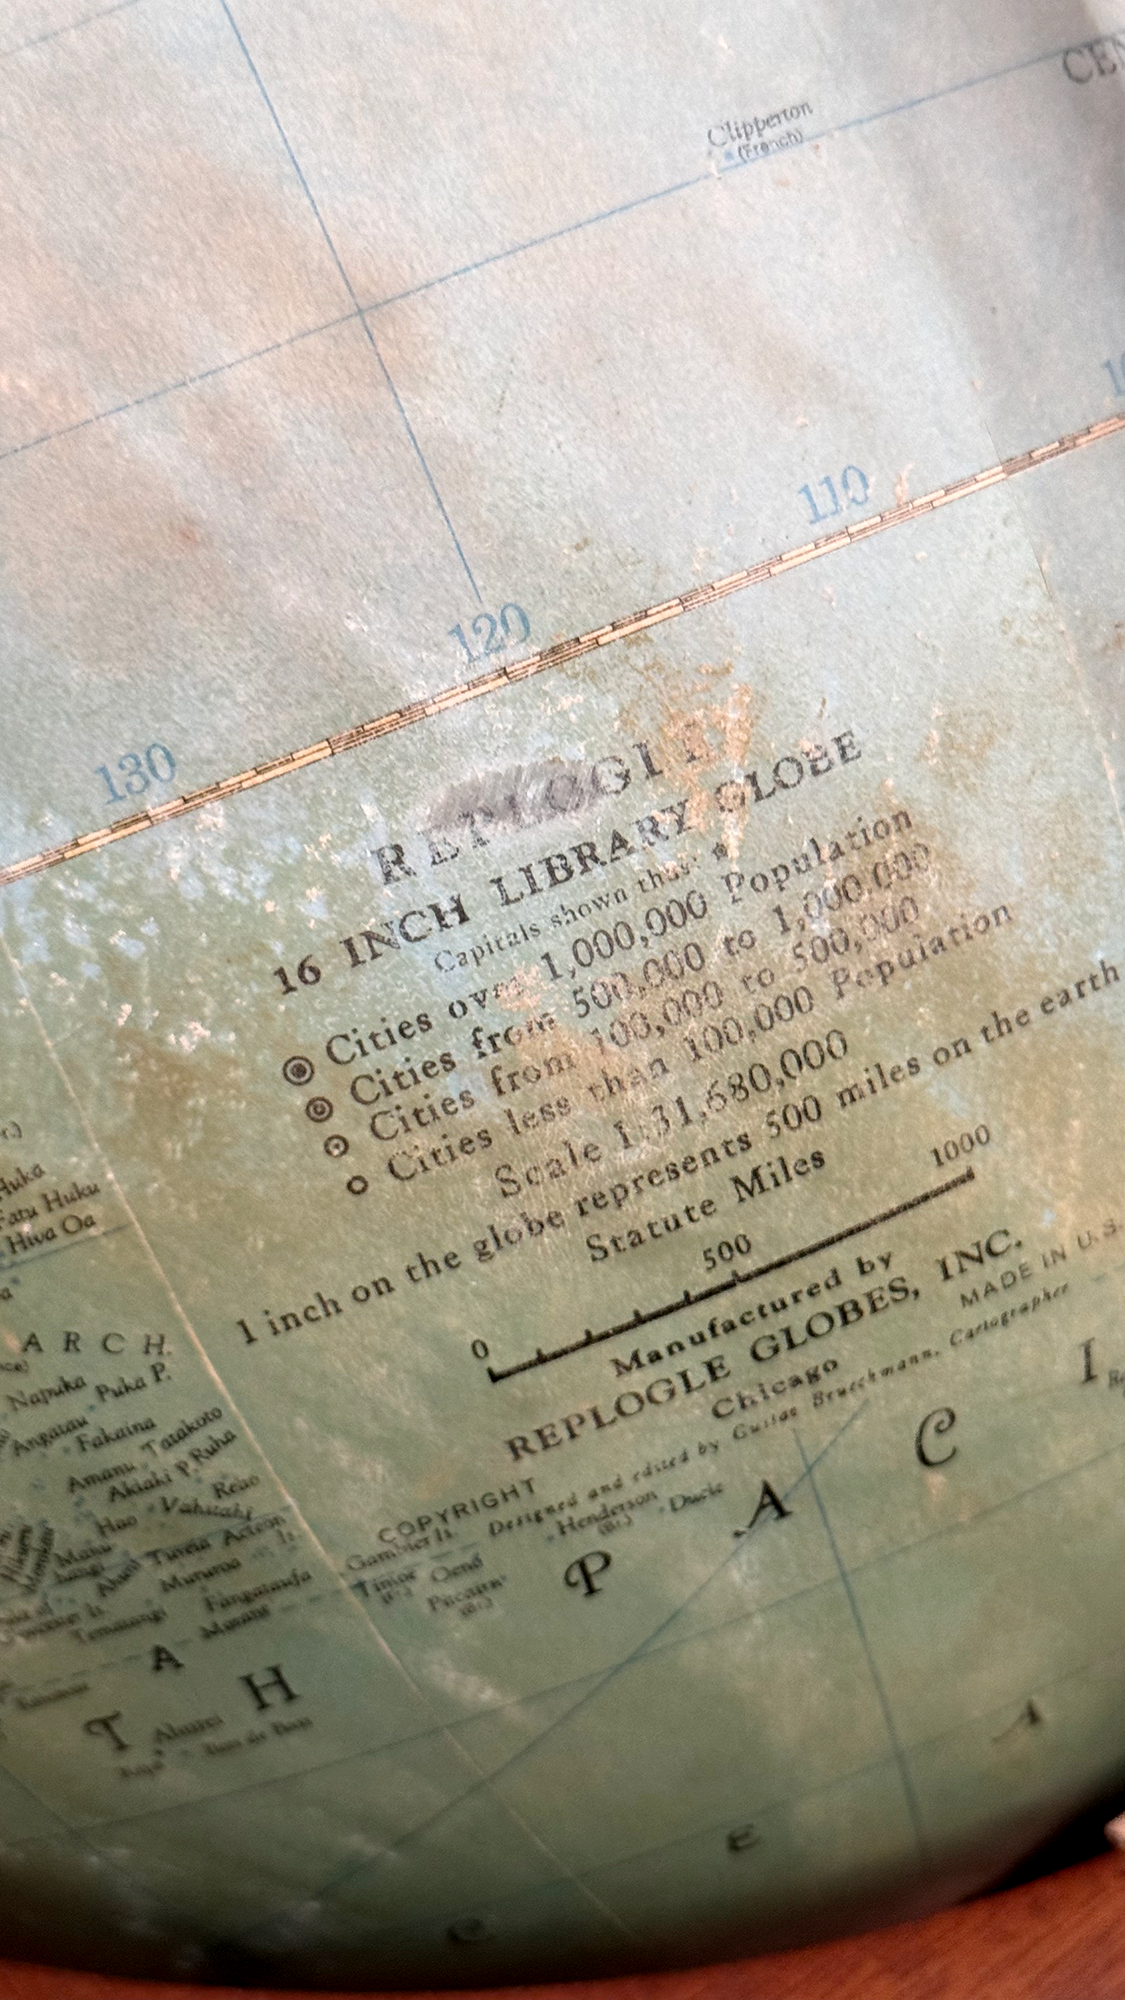 Clipperton
(French)
CEN
110
120
130
REPLOGLE
16 INCH LIBRARY GLOBE
Capitals shown thus:
Cities over 1,000,000 Population
Cities from 500,000 to 1,000,000
Cities from 100,000 to 500,000
Cities less than 100,000 Population
Scale 1:31,680,000
1 inch on the globe represents 500 miles on the earth
Statute Miles
0 500 1000
Manufactured by
REPLOGLE GLOBES, INC.
Chicago
MADE IN U.S.
COPYRIGHT
Designed and edited by Gustav Brueckmann, Cartographer
Huku
Fatu Huku
Hiva Oa
ARCH.
Napuka
Puka P.
Angatau
Fakaina
Amanu
Tatakoto
Akiaki P. Ruha
Reao
Hao
Vahitahi
Tureia Acteon
Is.
Mururoa
Fangataufa
Tematangi
Gambier Is.
Henderson
(Br.)
Ducie
Oeno
Pitcairn
(Br.)
PACI
A
T H
A
E